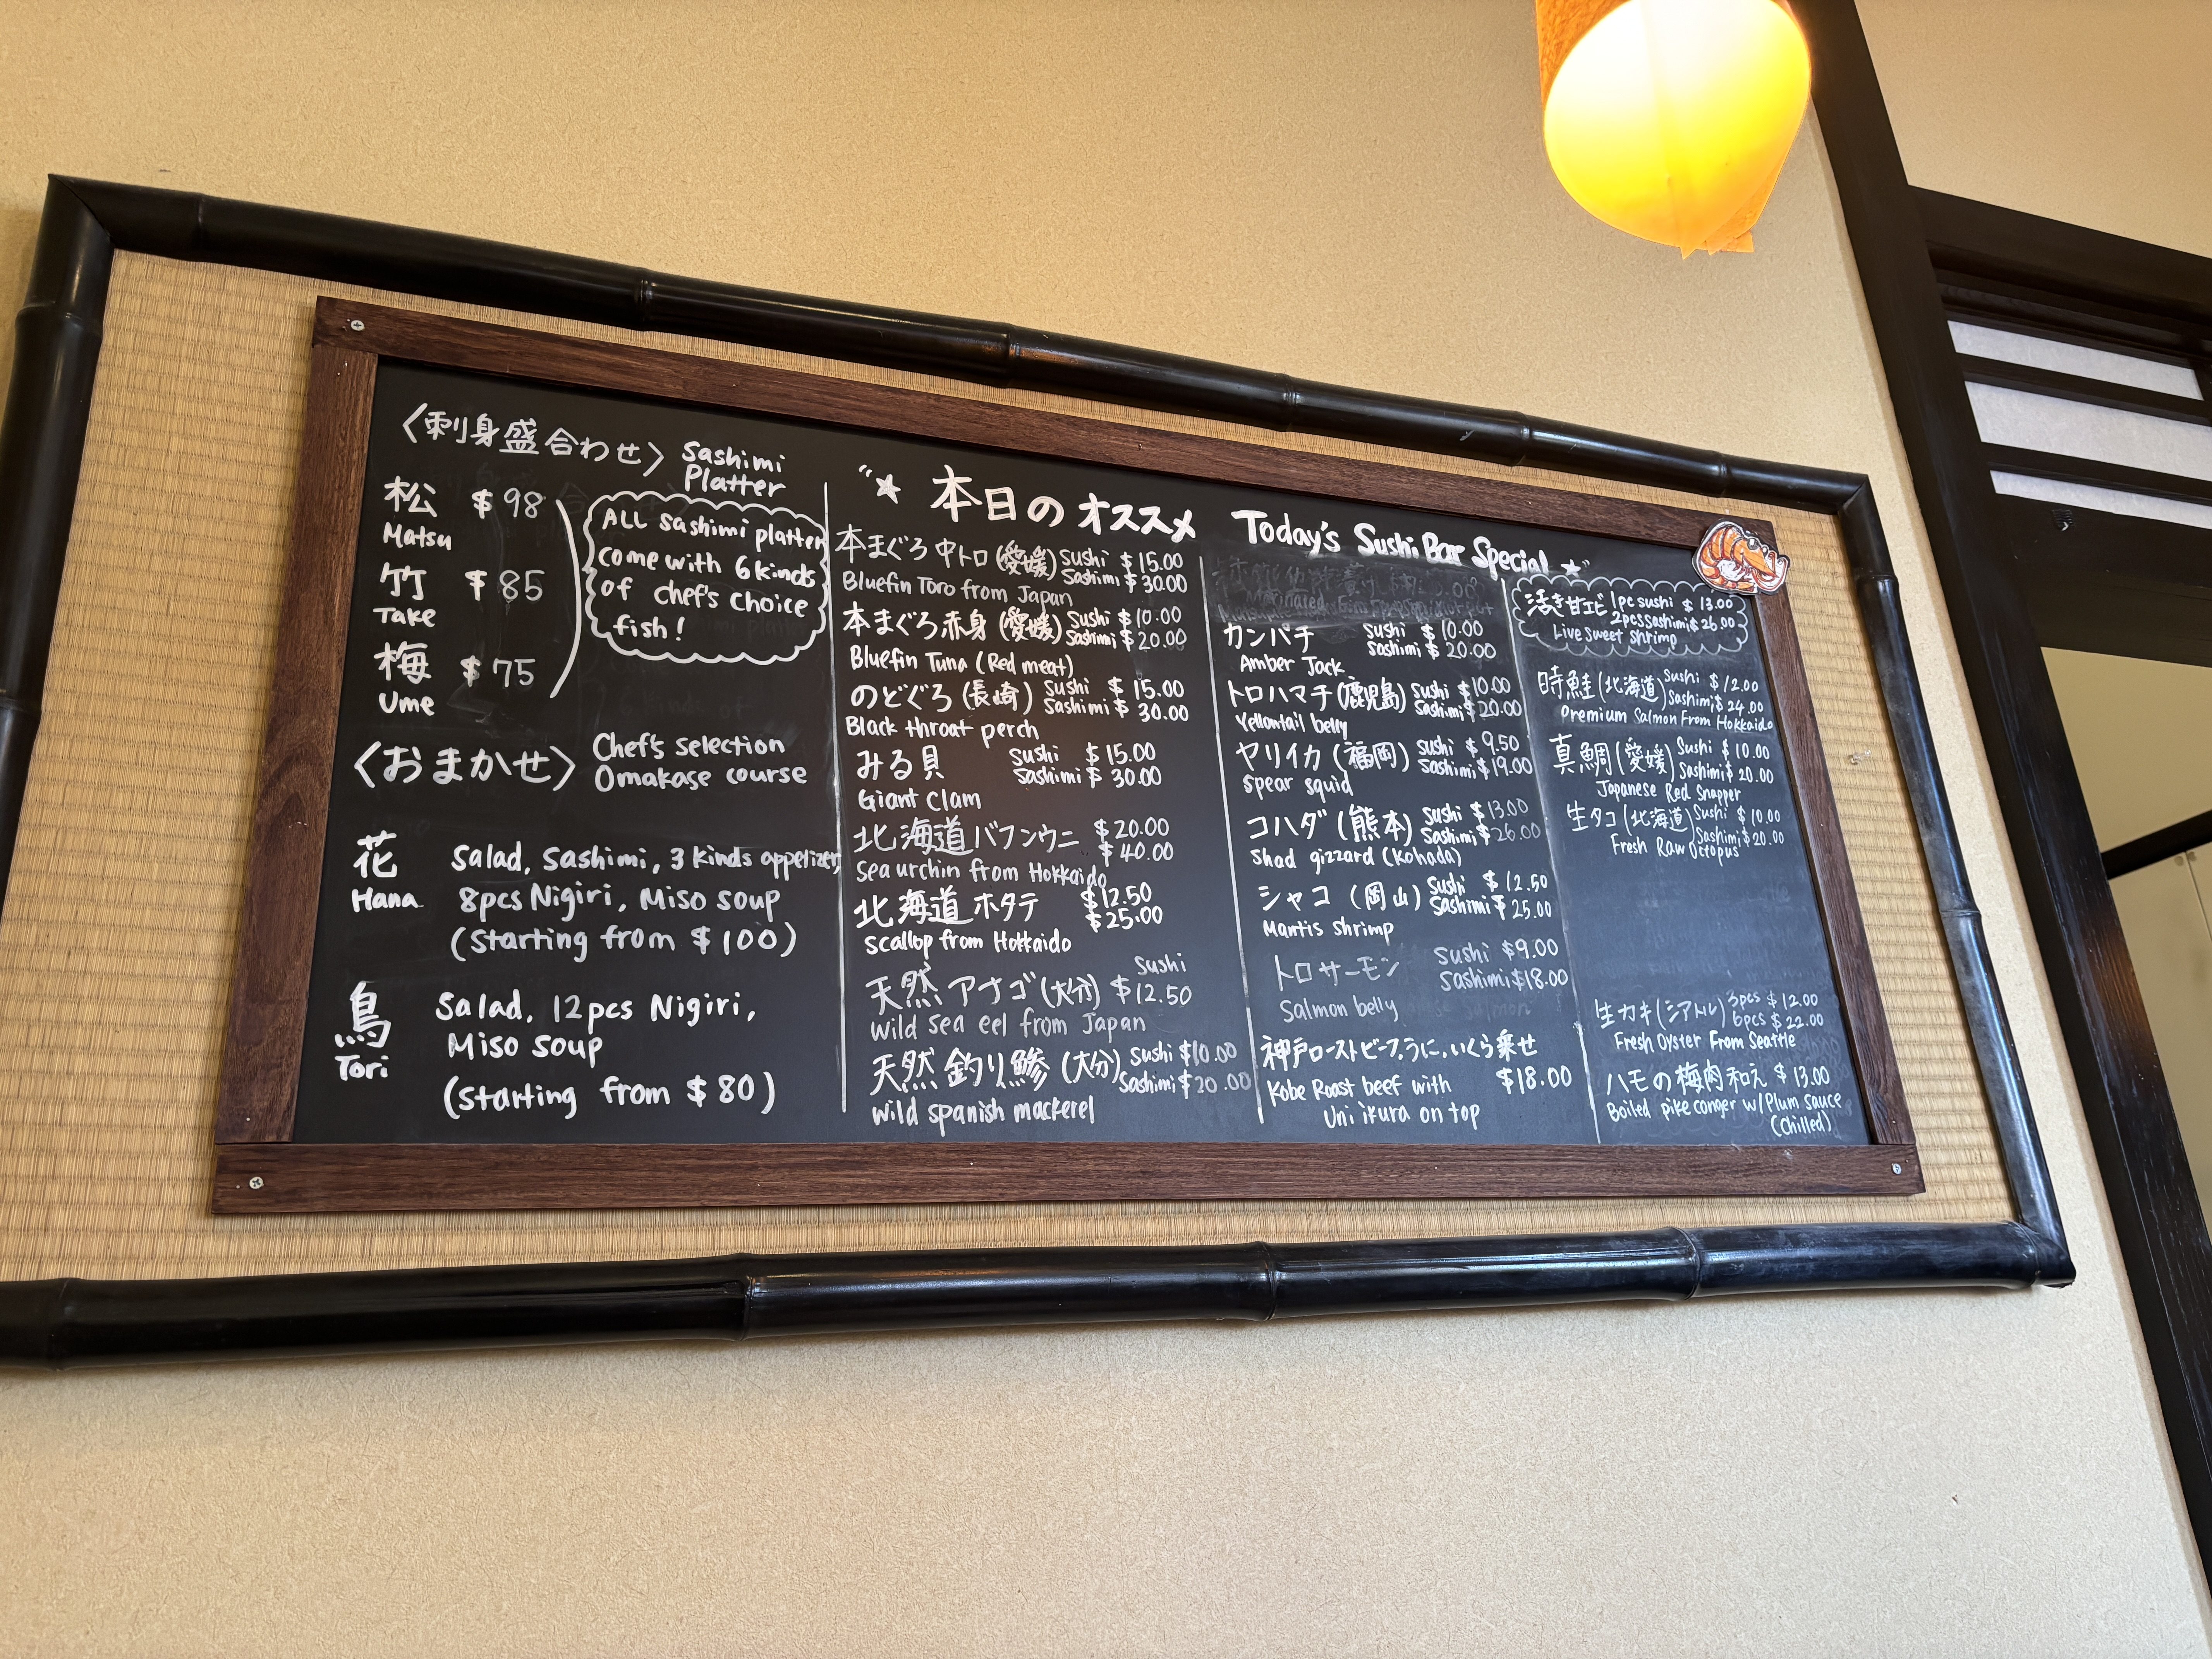 〈刺身盛合わせ〉 Sashimi Platter
松 $98
Matsu
竹 $85
Take
梅 $75
Ume
ALL sashimi platter
come with 6 kinds
of chef's choice
fish!
〈おまかせ〉 Chef's selection
Omakase course
花 Salad, Sashimi, 3 kinds appetizer,
Hana 8pcs Nigiri, Miso soup
(starting from $100)
鳥 Salad, 12pcs Nigiri,
Tori Miso soup
(starting from $80)
"★ 本日の オススメ Today's Sushi Bar Special ★"
本まぐろ中トロ(愛媛) Sushi $15.00
Sashimi $30.00
Bluefin Toro from Japan
本まぐろ赤身(愛媛) Sushi $10.00
Sashimi $20.00
Bluefin Tuna (Red meat)
のどぐろ(長崎) Sushi $15.00
Sashimi $30.00
Black throat perch
みる貝 Sushi $15.00
Sashimi $30.00
Giant Clam
北海道バフンウニ $20.00
$40.00
Sea urchin from Hokkaido
北海道ホタテ $12.50
$25.00
Scallop from Hokkaido
天然アナゴ(大分) Sushi
$12.50
Wild Sea eel from Japan
天然 釣り鯵(大分) Sushi $10.00
Sashimi $20.00
Wild spanish mackerel
カンパチ Sushi $10.00
Sashimi $20.00
Amber Jack
トロハマチ(鹿児島) Sushi $10.00
Sashimi $20.00
Yellowtail belly
ヤリイカ(福岡) Sushi $9.50
Sashimi $19.00
Spear squid
コハダ(熊本) Sushi $13.00
Sashimi $26.00
Shad gizzard (kohada)
シャコ(岡山) Sushi $12.50
Sashimi $25.00
Mantis shrimp
トロサーモン Sushi $9.00
Sashimi $18.00
Salmon belly
神戸ローストビーフ,うに,いくら乗せ
Kobe Roast beef with $18.00
Uni ikura on top
活き甘エビ 1pc sushi $13.00
2pcs sashimi $26.00
Live sweet shrimp
時鮭(北海道) Sushi $12.00
Sashimi $24.00
Premium Salmon From Hokkaido
真鯛(愛媛) Sushi $10.00
Sashimi $20.00
Japanese Red Snapper
生タコ(北海道) Sushi $10.00
Sashimi $20.00
Fresh Raw Octopus
生カキ(シアトル) 3pcs $12.00
6pcs $22.00
Fresh Oyster From Seattle
ハモの梅肉和え $13.00
Boiled pike conger w/Plum sauce
(chilled)